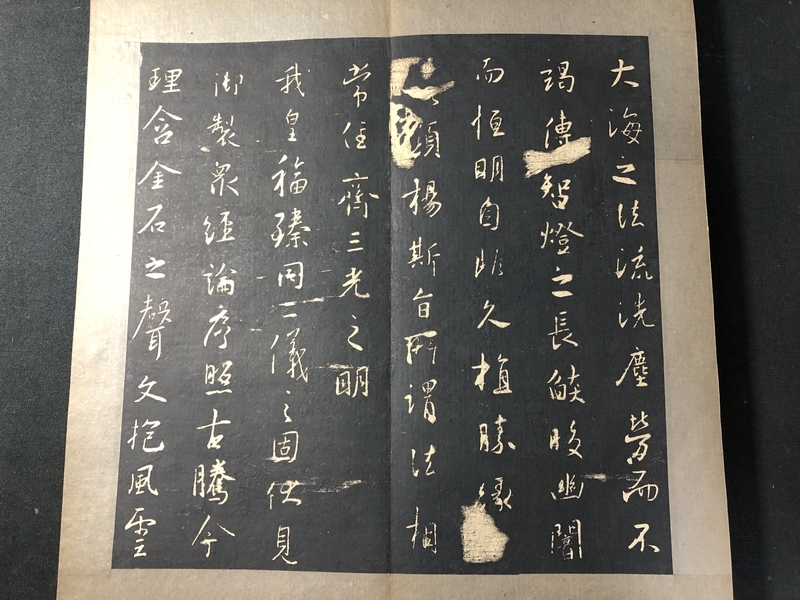 大海之法流洗塵勞而不
竭傳智燈之長燄皎幽闇
而恒明自非久植勝緣
顯揚斯旨所謂法相
常住齊三光之明
我皇福臻同二儀之固伏見
御製眾經論序照古騰今
理含金石之聲文抱風雲